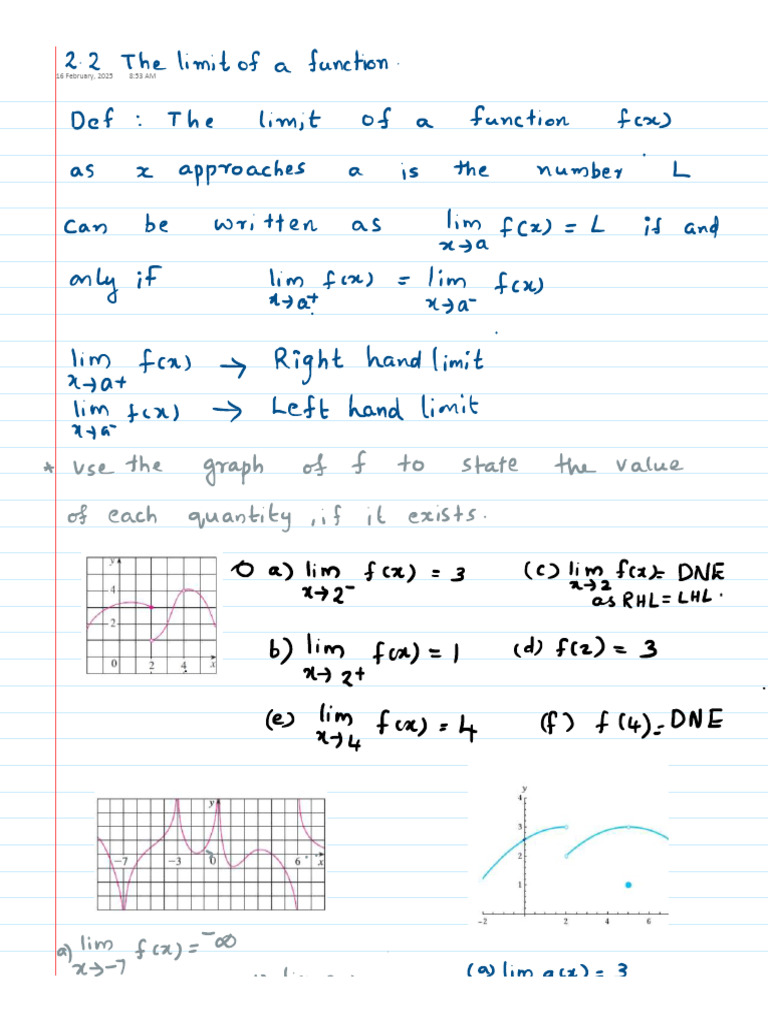 2.2 The limit of a function.
16 February, 2025 8:53 AM
Def : The limit of a function f(x)
as x approaches a is the number L
can be written as lim x→a f(x) = L if and
only if lim x→a⁺ f(x) = lim x→a⁻ f(x)
lim x→a⁺ f(x) → Right hand limit
lim x→a⁻ f(x) → Left hand limit
* Use the graph of f to state the value
of each quantity, if it exists.
y 4 2 0 2 4 x
a) lim x→2⁻ f(x) = 3 (c) lim x→2 f(x) = DNE
as RHL = LHL.
b) lim x→2⁺ f(x) = 1 (d) f(2) = 3
(e) lim x→4 f(x) = 4 (f) f(4) = DNE
y -7 -3 0 6 x
y 4 3 2 1 -2 2 4 6
a) lim x→-7 f(x) = -∞
(a) lim g(x) = 3